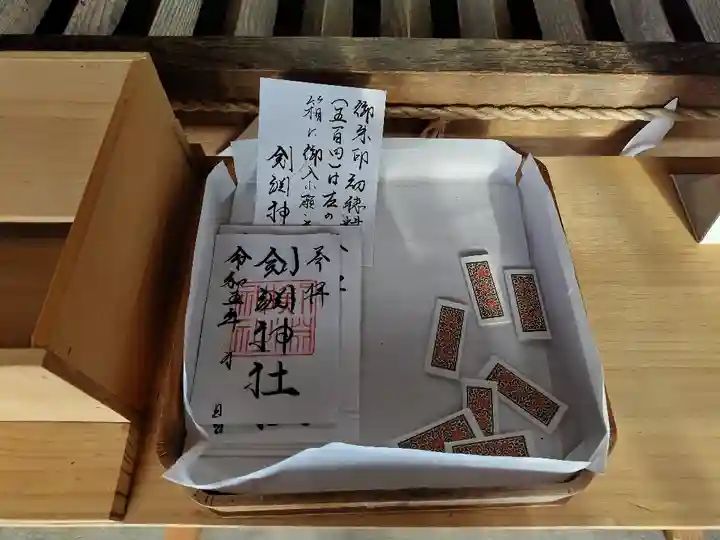 御朱印初穂料
(五百円)は左の
箱に御入れ願い
剣網神
奉拝
剣網神社
令和五年 月
日